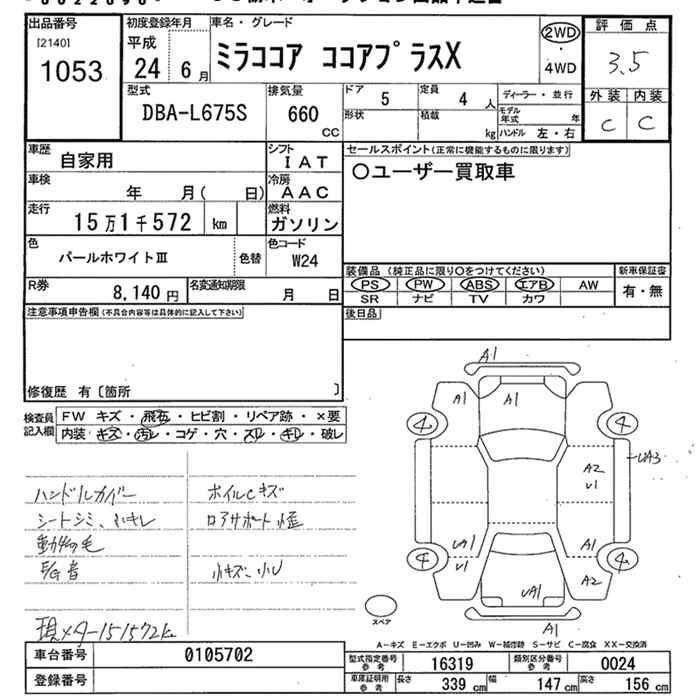 出品番号
[2140]
1053
初度登録年月
平成
24年 6月
車名・グレード
ミラココア ココアプラスX
2WD
・
4WD
評価点
3.5
外装 内装
C C
型式
DBA-L675S
排気量
660
CC
ドア 5
定員 4人
形状
積載 kg
ディーラー・並行
モデル年式 年
ハンドル 左・右
車歴
自家用
シフト
IAT
セールスポイント(正常に機能するものに限ります)
○ユーザー買取車
車検
年 月( 日)
冷房
AAC
走行
15万1千572 km
燃料
ガソリン
色
パールホワイトⅢ
色替
色コード
W24
装備品(純正品に限り○をつけてください)
PS PW ABS エアB AW
SR ナビ TV カワ
新車保証書
有・無
R券
8,140円
名変通知期限
月 日
後日品
注意事項申告欄(不具合内容等は具体的に記入して下さい)
修復歴 有〔箇所 〕
検査員
記入欄
FW キズ・飛石・ヒビ割・リペア跡・×要
内装・キズ・汚レ・コゲ・穴・スレ・キレ・破レ
ハンドルカバー
シートシミ、
動物の毛
ホイルCキズ
ロアサポート
小キズ、小U
現メーター151572k
A1
A1
A1
4
4
UA3
A2
U1
UA1
U1
A1
4
4
A2
UA1
A1
スペア
A-キズ E-エクボ U-凹み W-補修跡 S-サビ C-腐食 XX-交換済
車台番号
0105702
登録番号
型式指定番号
参考
16319
類別区分番号
参考
0024
車庫証明用
参考
長さ 339cm
幅 147cm
高さ 156cm